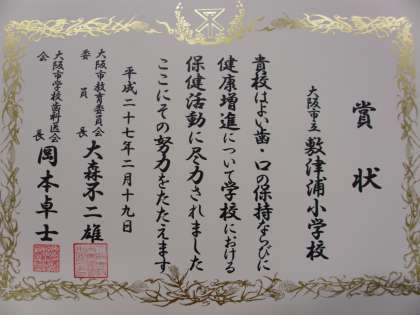 賞状
大阪市立 敷津浦小学校
貴校はよい歯・口の保持ならびに
健康増進について学校における
保健活動に尽力されました
ここにその努力をたたえます
平成二十七年二月十九日
大阪市教育委員会
委員長 大森不二雄
大阪市学校歯科医会
会長 岡本卓士